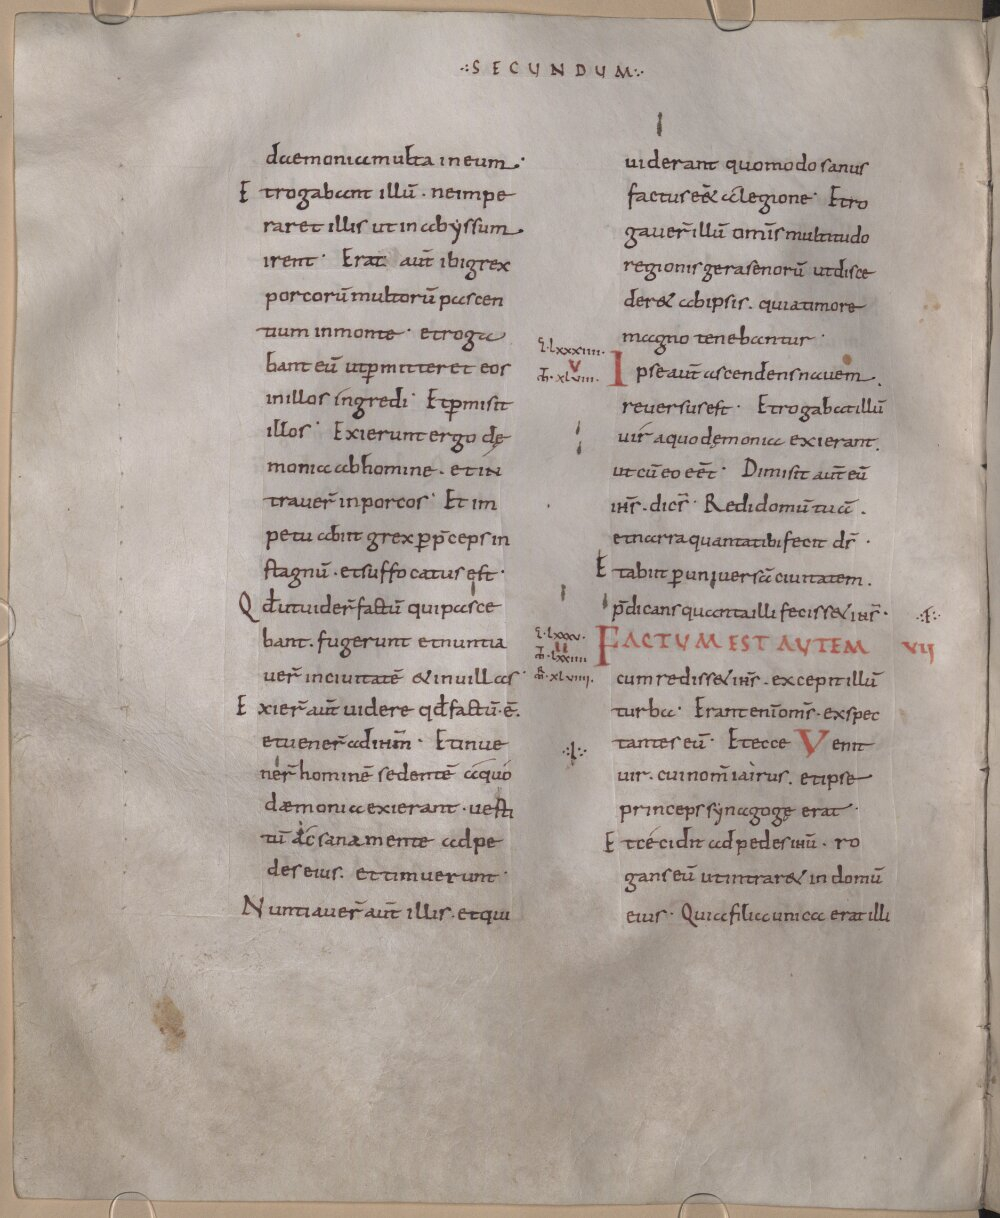 ∴SECUNDUM∵
daemonia multa in eum.
Et rogabant illū. ne impe
raret illis ut in abyssum
irent. Erat aut̄ ibi grex
porcorū multorū pascen
tium in monte. et roga
bant eū ut ꝑmitteret eos
in illos ingredi. Et ꝑmisit
illos. Exierunt ergo dę
monia ab homine. et in
traver̄ in porcos. Et im
petu abiit grex ꝑ p̄ceps in
stagnū. et suffocatus est.
Qd̄ ut uider̄ factū qui pasce
bant. fugerunt et nuntia
uer̄ in ciuitatē & in uillas.
Exier̄ aut̄ uidere qd̄ factū. ē.
et uener̄ ad ihm̄. Et inue
ner̄ hominē sedentē a quo
dæmonia exierant. uesti
tū ac sana mente ad pe
des eius. et timuerunt.
Nuntiauer̄ aut̄ illis. et qui
uiderant quomodo sanus
factus eēt a legione. Et ro
gauer̄ illū om̄is multitudo
regionis gerasenorū ut disce
der& ab ipsis. quia timore
magno tenebantur.
L. lxxxiiii.
V
M. xlviii.
Ipse aut̄ ascendens nauem.
reuersus est. Et rogabat illū
uir a quo dęmonia exierant.
ut cū eo eēt. Dimisit aut̄ eū
ihs̄. dics̄. Redi domū tuā.
et narra quanta tibi fecit ds̄.
Et abiit ꝑ uniuersā ciuitatem.
p̄dicans quanta illi feciss& ihs̄.
∴F∵
L. lxxxv.
II
M. lxxiiii
R. xlviiii.
FACTUM EST AUTEM VII
cum rediss& ihs̄. excepit illū
turba. Erant eni om̄s. exspec
tantes eū. Et ecce Venit
∴L∵
uir. cui nom̄ iairus. et ipse
princeps synagogę erat.
Et cecidit ad pedes ihū. ro
gans eū ut intrar& in domū
eius. Quia filia unica erat illi